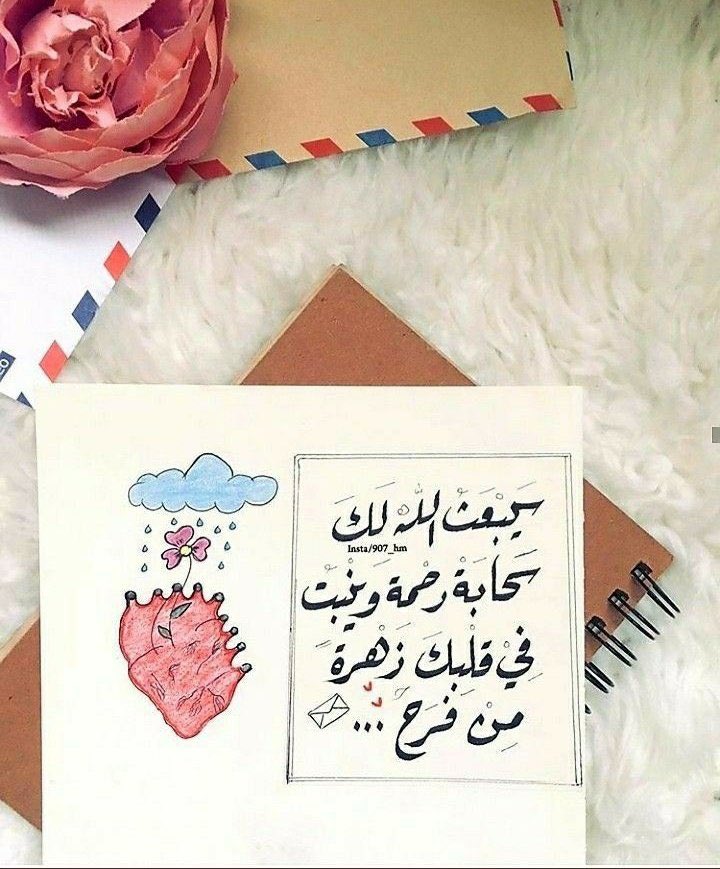 سَيَبْعَثُ اللّٰهُ لَكَ
Insta/907_hm
سَحَابَةْ رَحْمَة وَيُنْبِتُ
فِيْ قَلْبِكَ زَهْرَة
مِنْ فَرَحٍ ...